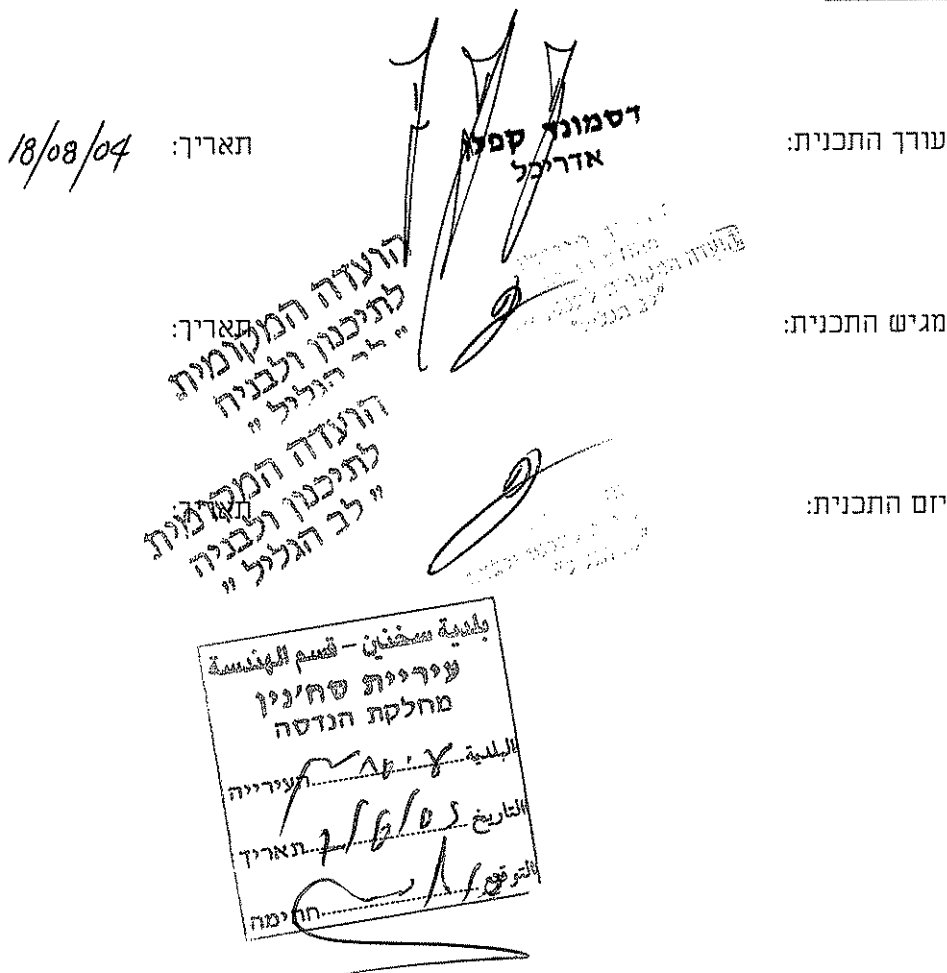 עורך התכנית:
דסמונד קפלן
אדריכל
תאריך: 18/08/04
מגיש התכנית:
הועדה המקומית
"לב הגליל"
תאריך:
הועדה המקומית
לתיכנון ולבניה
"לב הגליל"
יזם התכנית:
תאריך:
הועדה המקומית
לתיכנון ולבניה
"לב הגליל"
بلدية سخنين - قسم الهندسة
עיריית סח'נין
מחלקת הנדסה
البلدية העירייה
التاريخ תאריך
التوقيع חתימה